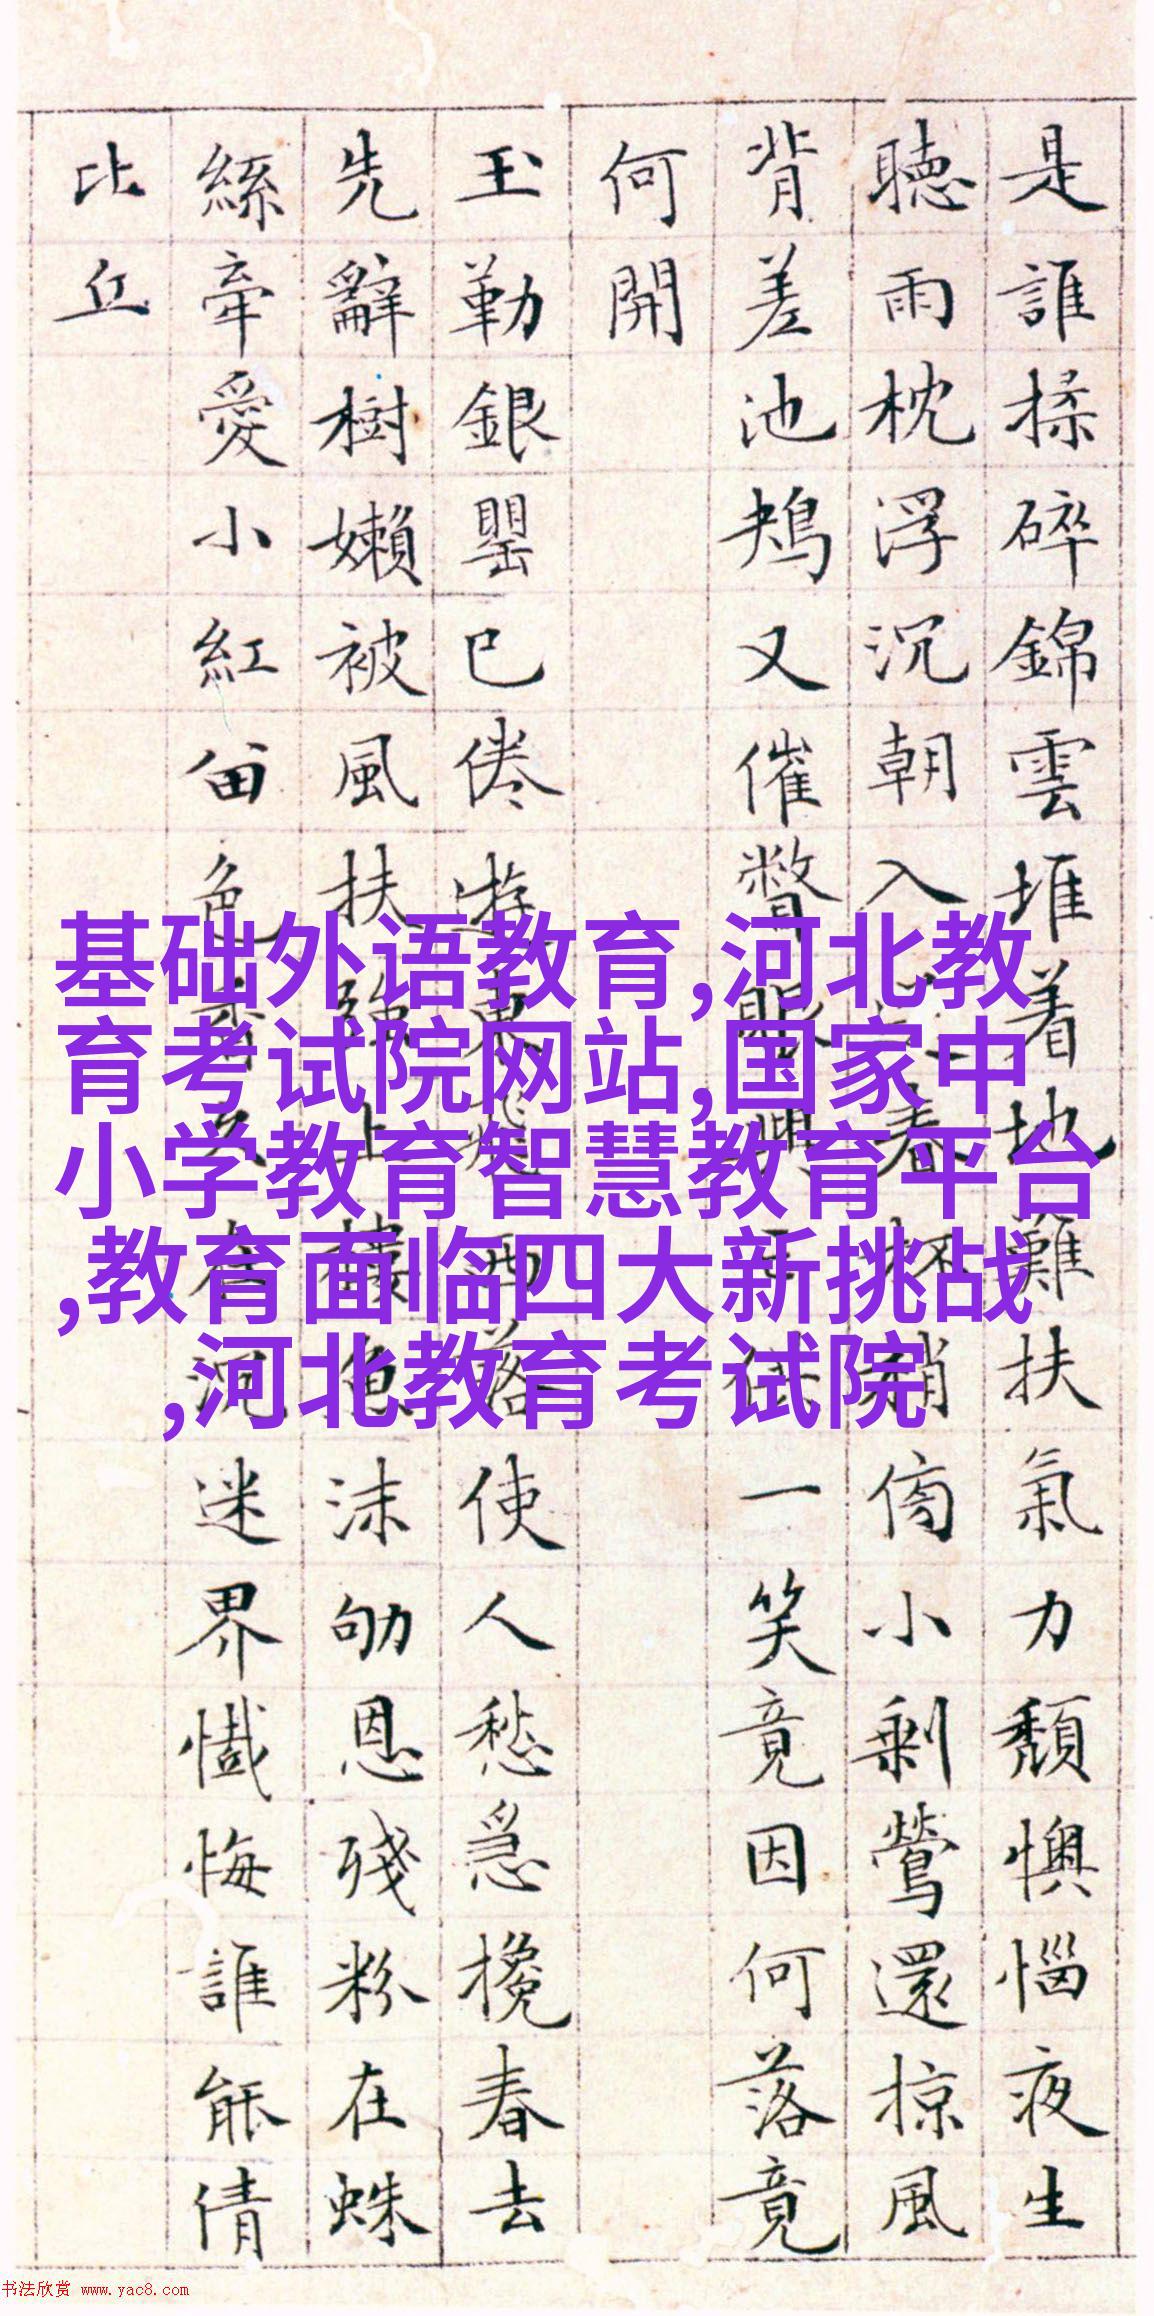 是誰揉碎錦雲堆着地難扶氣力頹懊惱夜生
聴雨枕浮沉朝入春杯小剩鶯還掠風
背差池鴂又催瞥眼興一笑竟因何落竟
何開
玉勒銀罌已倦遊東飛西落使人愁急攙春去
先辭樹嬾被風扶強上樓沫恩殘粉在蛛
絲牽愛小紅留色香久在沉迷界懺悔誰能倩
比丘
基础外语教育,河北教
育考试院网站,国家中
小学教育智慧教育平台
,教育面临四大新挑战
,河北教育考试院
书法欣赏 www.yac8.com